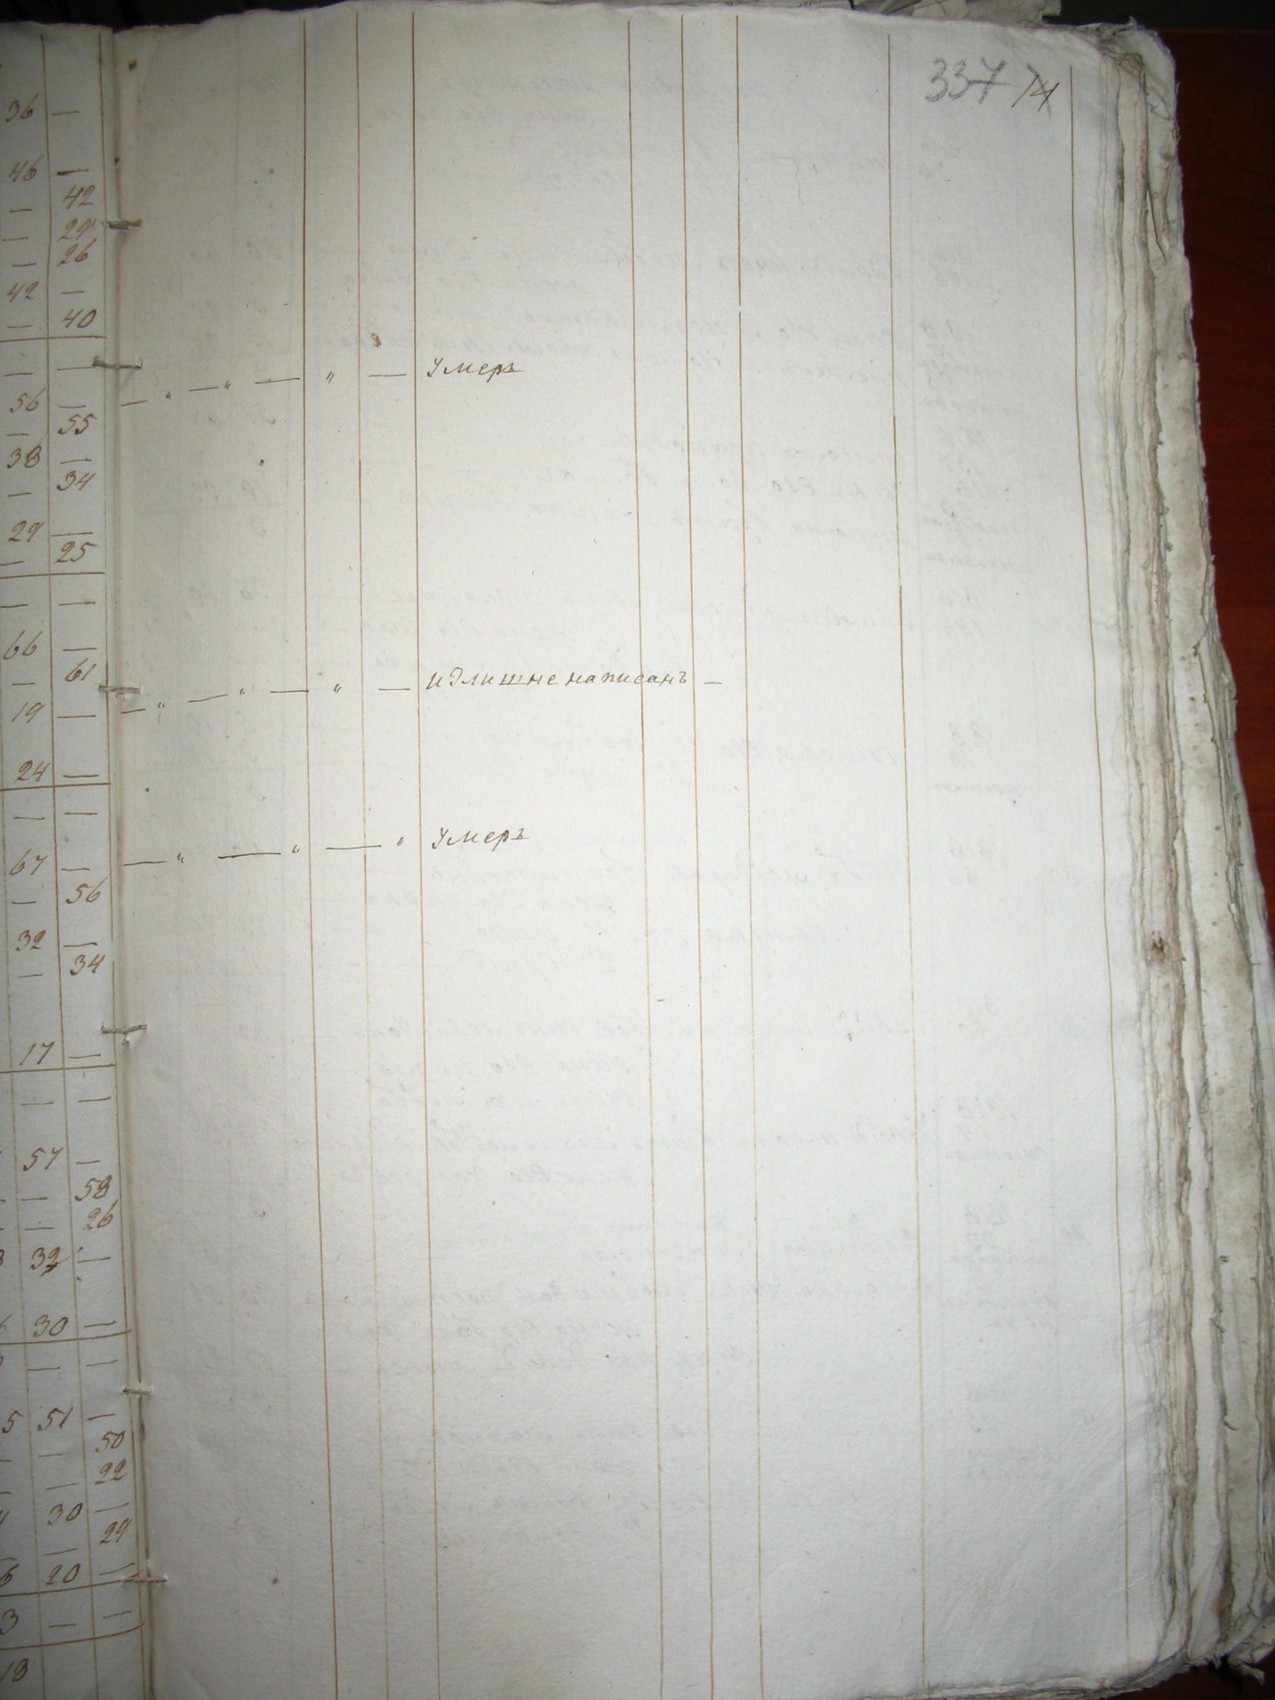 337 74
36 —
46 —
— 42
— 29
— 26
42 —
— 40
— —
— „ — „ — „ — Умеръ
56 —
— 55
38 —
— 34
29 —
— 25
— —
66 —
— 61
— „ — „ — „ — излишне написанъ —
19 —
24 —
— —
— „ — „ — „ Умеръ
67 —
— 56
32 —
— 34
17 —
— —
57 —
— — 58
— — 26
32 —
30 —
— —
5 51 —
— 50
— 22
30 —
— 29
6 20 —
3 — —